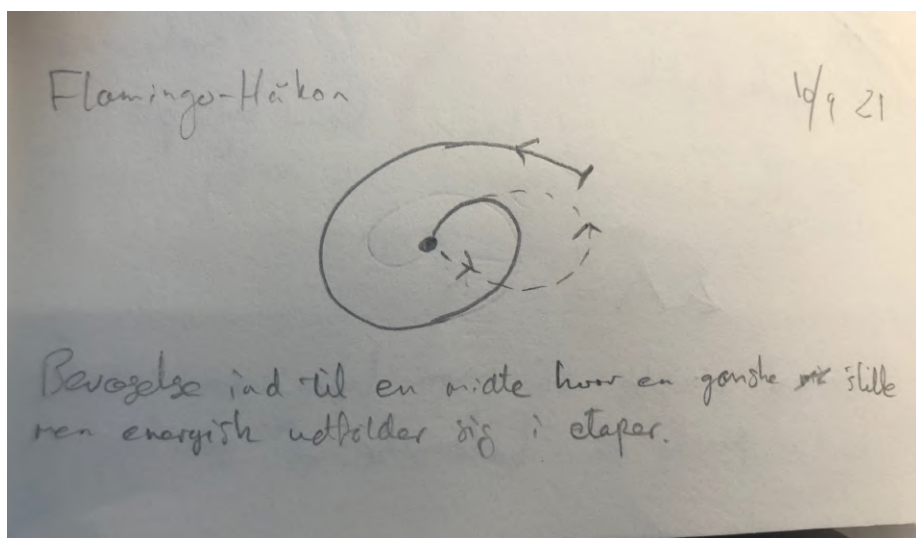 Flamingo-Håkon
10/9 21
Bevægelse ind til en midte hvor en ganske stille
men energisk udfolder sig i etaper.